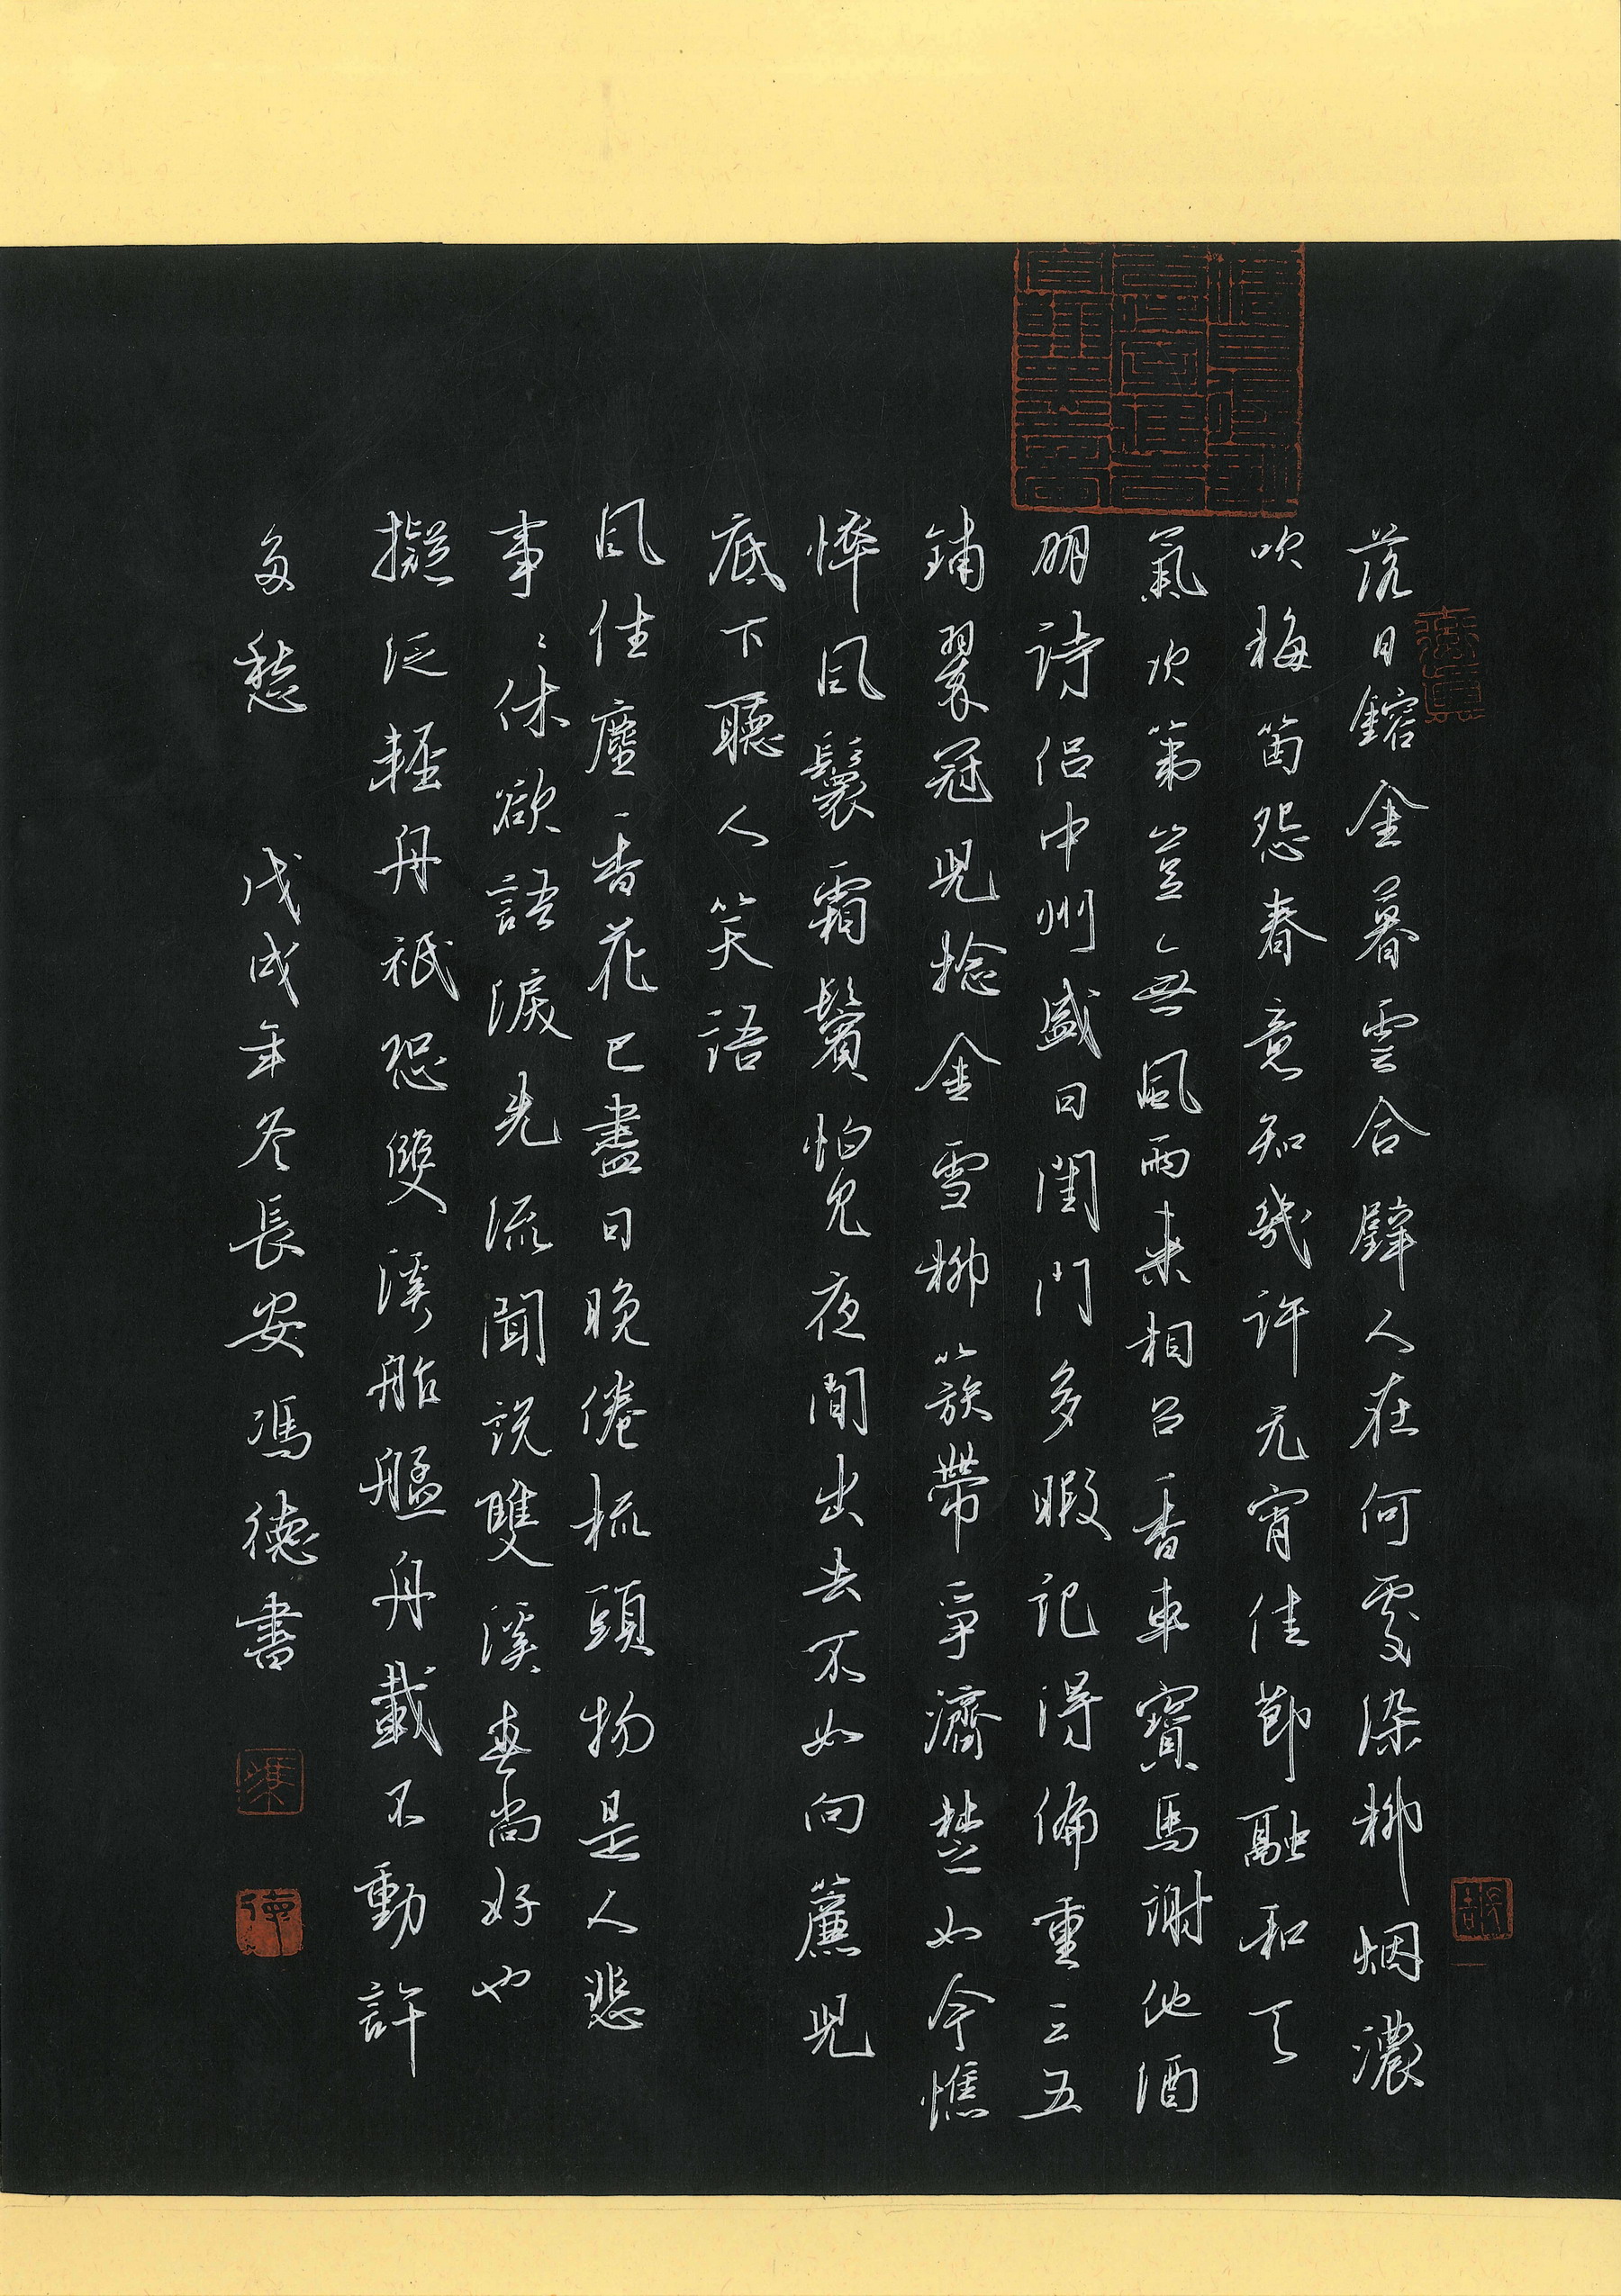 落日鎔金暮雲合璧人在何處染柳烟濃
吹梅笛怨春意知幾許元宵佳節融和天
氣次第豈無風雨來相召香車寶馬謝他酒
朋詩侶中州盛日閨門多暇記得偏重三五
鋪翠冠兒捻金雪柳簇帶爭濟楚如今憔
悴風鬟霜鬢怕見夜間出去不如向簾兒
底下聽人笑語
風住塵香花已盡日晚倦梳頭物是人悲
事事休欲語淚先流聞說雙溪春尚好也
擬泛輕舟祇恐雙溪舴艋舟載不動許
多愁 戊戌年冬長安馮德書
馮
德